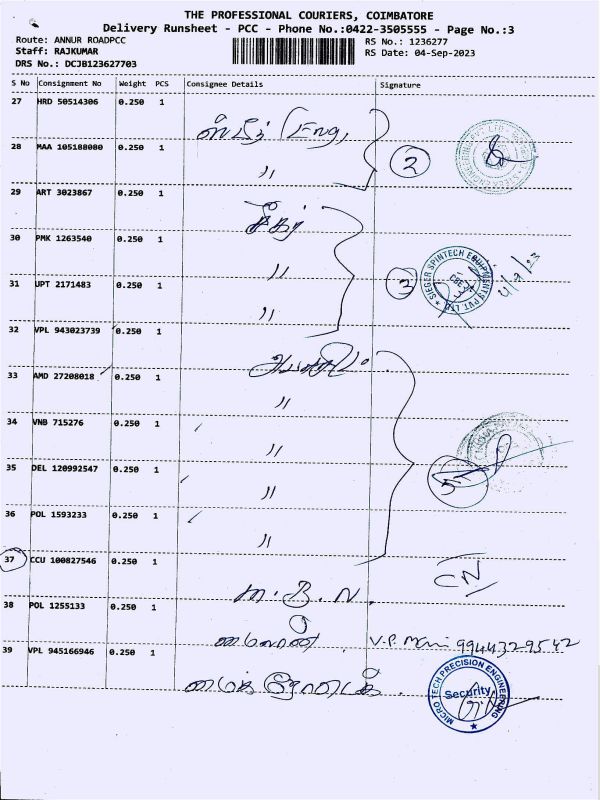 THE PROFESSIONAL COURIERS, COIMBATORE
Delivery Runsheet - PCC - Phone No.:0422-3505555 - Page No.:3
Route: ANNUR ROADPCC
Staff: RAJKUMAR
DRS No.: DCJB123627703
RS No.: 1236277
RS Date: 04-Sep-2023
S No Consignment No Weight PCS Consignee Details Signature
27 HRD 50514306 0.250 1
Eng,
28 MAA 105188080 0.250 1
2
〃
29 ART 3023867 0.250 1
30 PMK 1263540 0.250 1
〃
SIEGER SPINTECH EQUIPMENTS PVT LTD
CBE
31 UPT 2171483 0.250 1
3
〃
32 VPL 943023739 0.250 1
33 AMD 27208018 0.250 1
〃
34 VNB 715276 0.250 1
〃
35 DEL 120992547 0.250 1
5
〃
36 POL 1593233 0.250 1
〃
37 CCU 100827546 0.250 1
CN
M.B.N.
38 POL 1255133 0.250 1
V.P. Mani 9944329542
39 VPL 945166946 0.250 1
MICRO TECH PRECISION ENGINEERING
Security